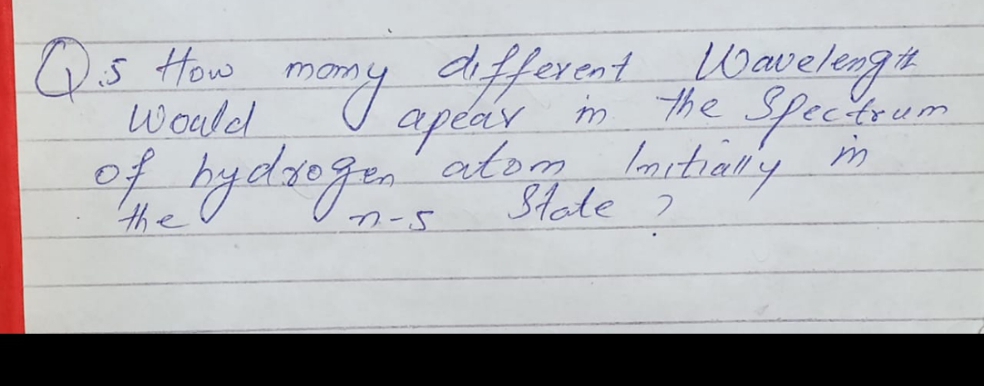 Q.5 How many different Wavelength
Would apear in the Spectrum
of hydrogen atom Initially in
the n-5 State ?